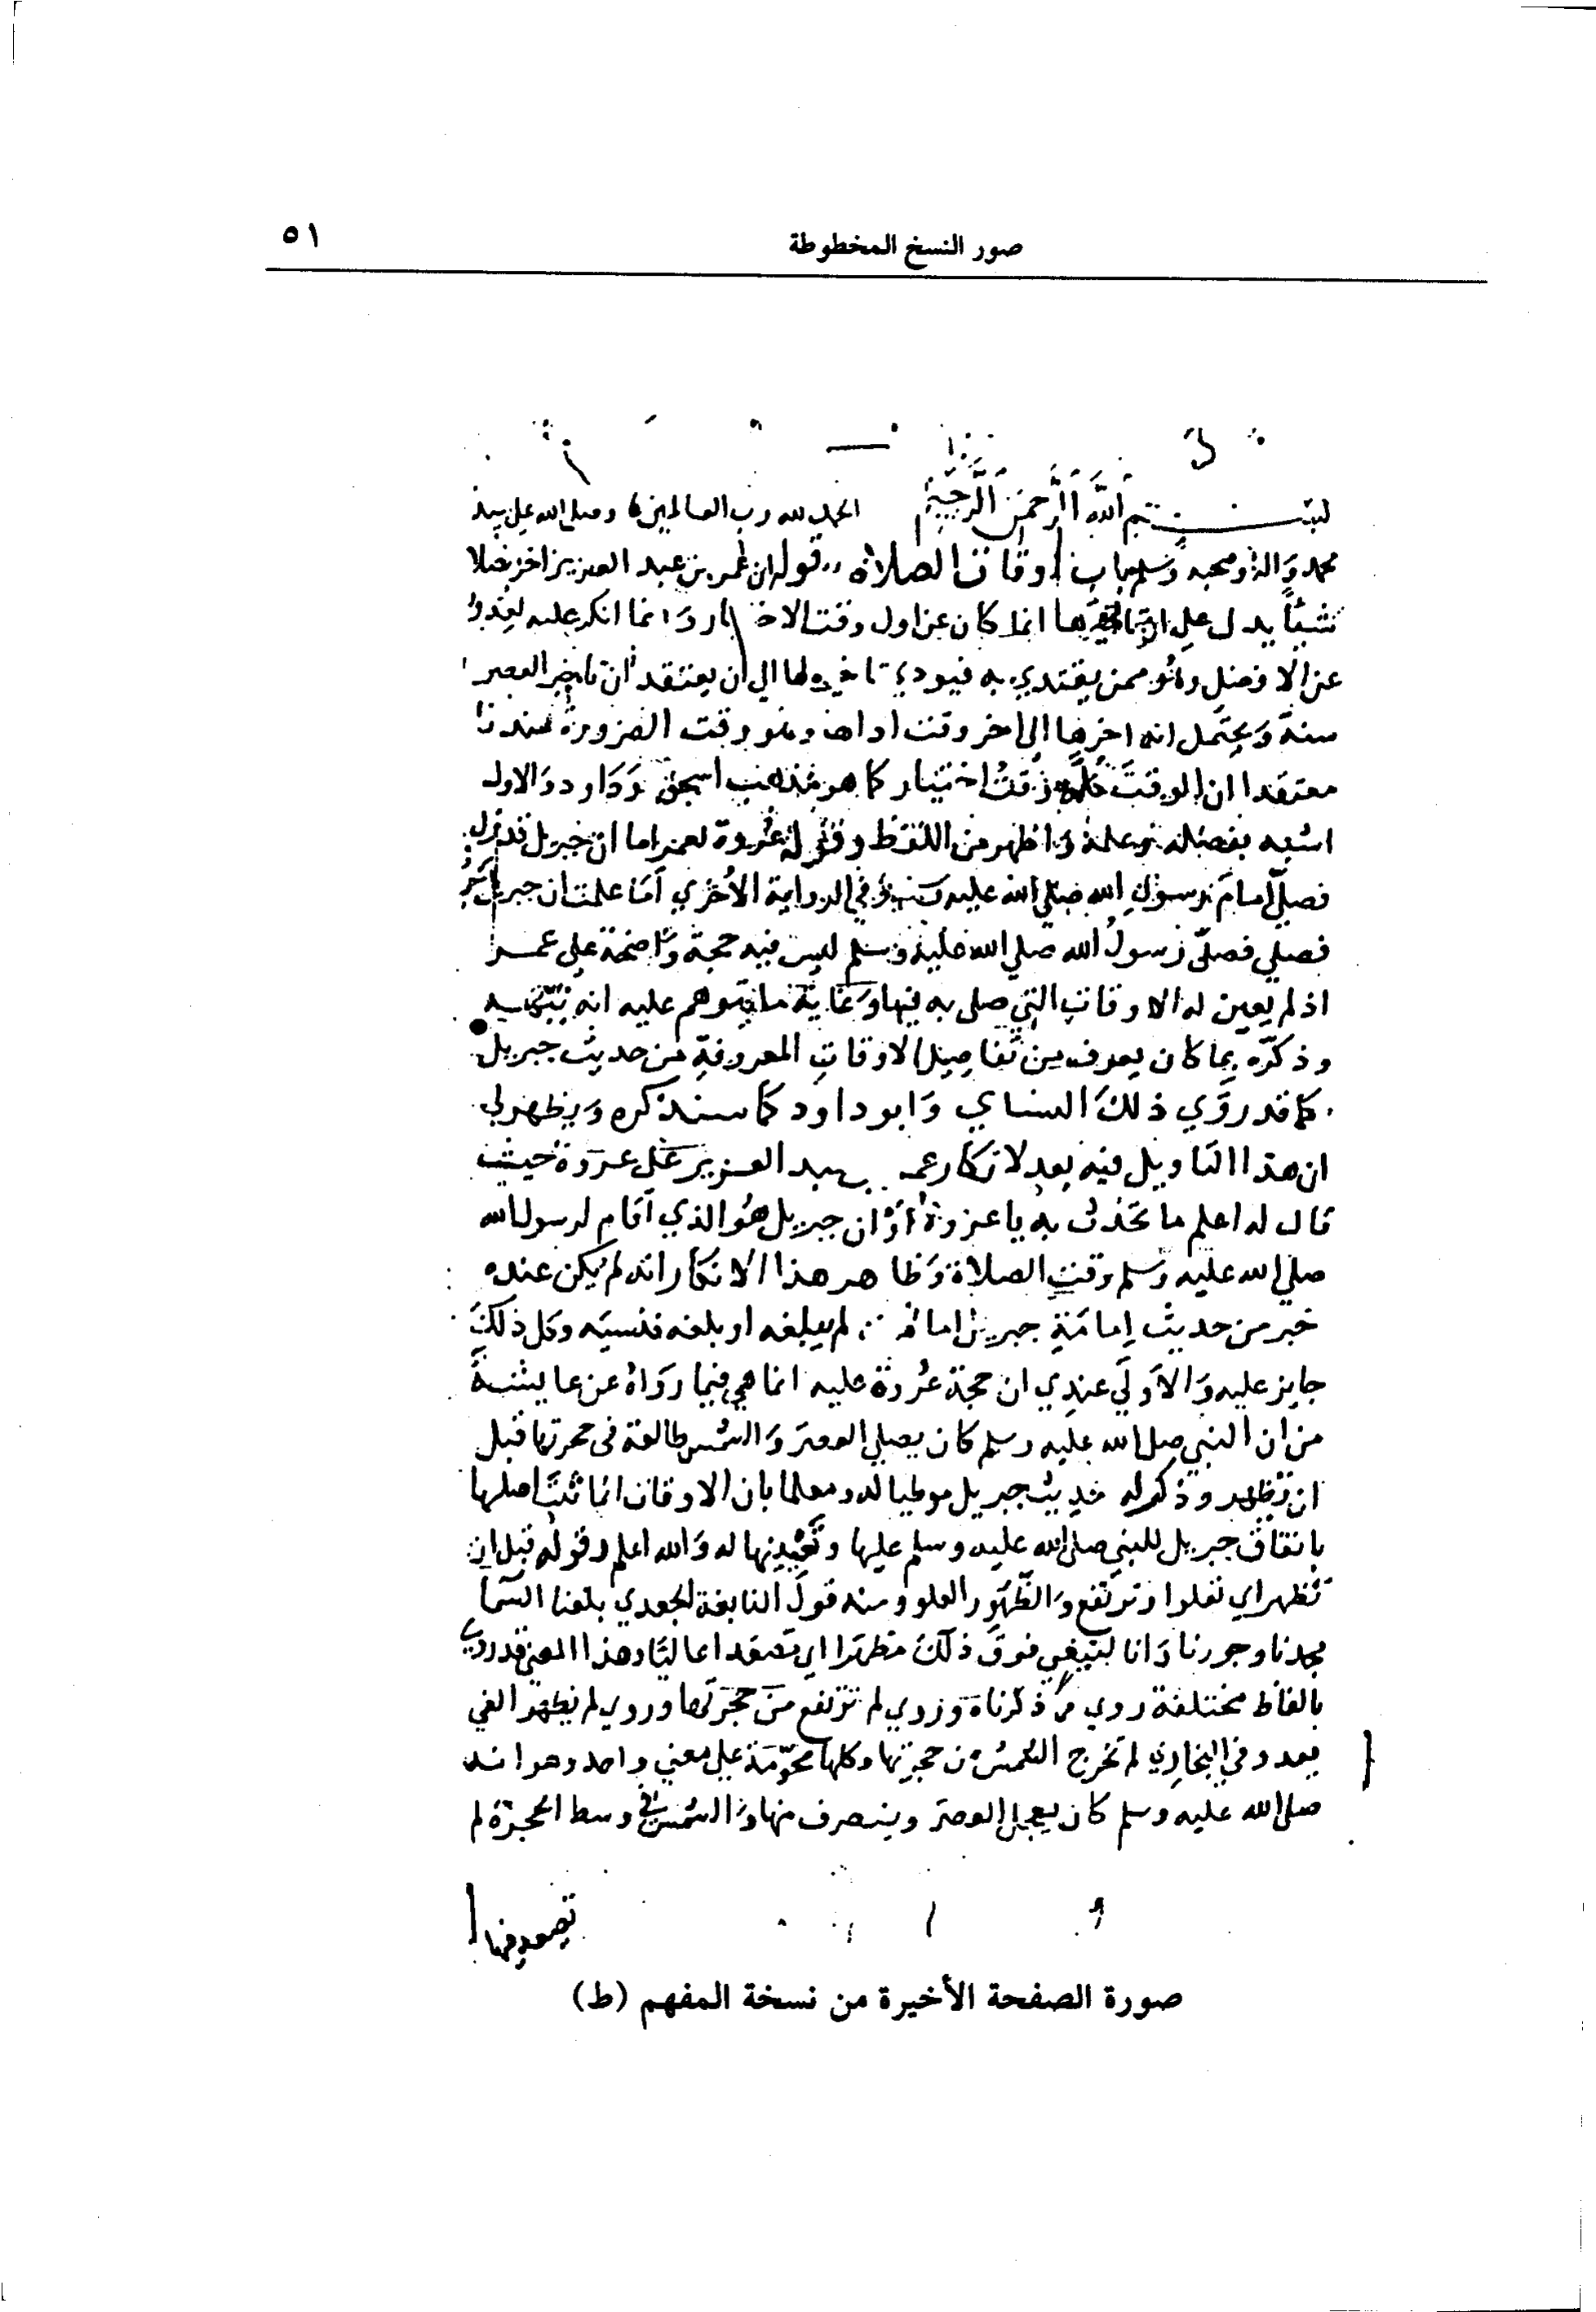 صور النسخ المخطوطة
٥١
بسم الله الرحمن الرحيم الحمد لله رب العالمين وصلى الله على سيدنا
محمد واله وصحبه وسلم باب اوقات الصلاة قوله ان عمر بن عبد العزيز اخر
شيئا يدل على تاخيرها انما كان عن اول وقت وانما انكر عليه
عن الافضل وهو ممن يقتدي به فيودي تاخيره لها الى ان يعتقد ان تاخير العصر
سنة ويحتمل انه اخرها الى اخر وقت ادائها وهو وقت الضرورة عندنا
معتقدا ان الوقت كله وقت اختيار كما هو مذهب اسحق وداود والاول
اشبه بفضله وعلمه واظهر من اللفظ وقول عروة لعمر اما ان جبريل قد نزل
فصلى امام رسول الله صلى الله عليه وفي الرواية الاخرى اما علمت ان جبريل
فصلي فصلى رسول الله صلى الله عليه وسلم ليس فيه حجة واضحة على عمر
اذ لم يعين له الاوقات التي صلى به فيها وغاية ما يتوهم عليه انه
وذكره بما كان يعرف من تفاصيل الاوقات المعروفة من حديث جبريل
كما قد روي ذلك النساي وابو داود كما سنذكره ويظهر لي
ان هذا التاويل فيه بعد لانكار عمر عبد العزيز على عروة حيث
قال له اعلم ما تحدث به يا عروة او ان جبريل هو الذي اقام لرسول الله
صلى الله عليه وسلم وقت الصلاة وظاهر هذا الانكار انه لم يكن عنده
خبر من حديث امامة جبريل اما لم يبلغه او بلغه فنسيه وكل ذلك
جايز عليه والاولى عندي ان حجة عروة عليه انما هي فيما رواه عن عايشة
من ان النبي صلى الله عليه وسلم كان يصلي العصر والشمس طالعة في حجرتها قبل
ان تظهر وذكر له حديث جبريل موطيا له ومعلما بان الاوقات انما ثبت اصلها
بايقاف جبريل للنبي صلى الله عليه وسلم عليها وتعيينها له والله اعلم وقوله قبل ان
تظهر اي تعلوا وترتفع والظهور العلو ومنه قول النابغة الجعدي بلغنا السما
مجدنا وجدودنا وانا لنبغي فوق ذلك مظهرا اي مصعدا عاليا وهذا المعنى قد روي
بالفاظ مختلفة روي ما ذكرناه وروي لم ترتفع من حجرتها وروي لم يظهر الفي
بعد وفي البخاري لم تخرج الشمس من حجرتها وكلها محومة على معنى واحد وهو انه
صلى الله عليه وسلم كان يعجل العصر وينصرف منها والشمس في وسط الحجرة لم
تصعد منها
صورة الصفحة الأخيرة من نسخة المفهم (ط)